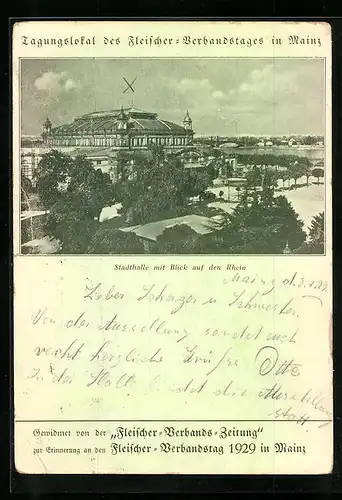 Tagungslokal des Fleischer-Verbandstages in Mainz
Stadthalle mit Blick auf den Rhein
Mainz d.
Lieber Schwager u Schwester.
Von der Ausstellung sendet euch
recht herzliche Grüße Otto
In der Halle findet die Ausstellung
statt
Gewidmet von der „Fleischer-Verbands-Zeitung"
zur Erinnerung an den Fleischer-Verbandstag 1929 in Mainz